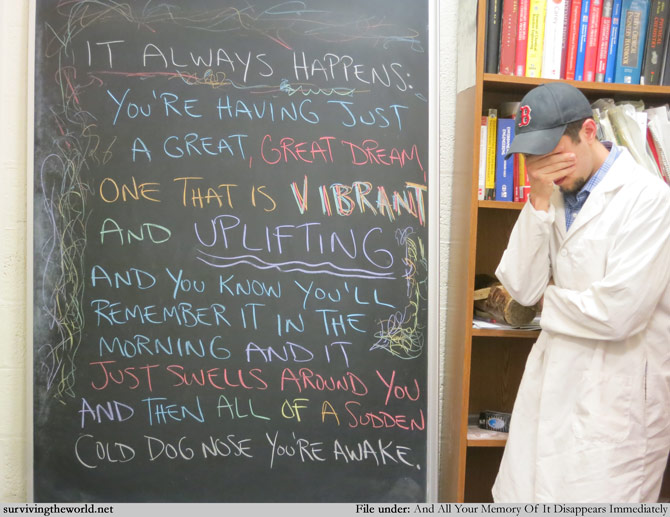 IT ALWAYS HAPPENS:
YOU'RE HAVING JUST
A GREAT, GREAT DREAM,
ONE THAT IS VIBRANT
AND UPLIFTING
AND YOU KNOW YOU'LL
REMEMBER IT IN THE
MORNING AND IT
JUST SWELLS AROUND YOU
AND THEN ALL OF A SUDDEN
COLD DOG NOSE YOU'RE AWAKE.
B
survivingtheworld.net
File under: And All Your Memory Of It Disappears Immediately